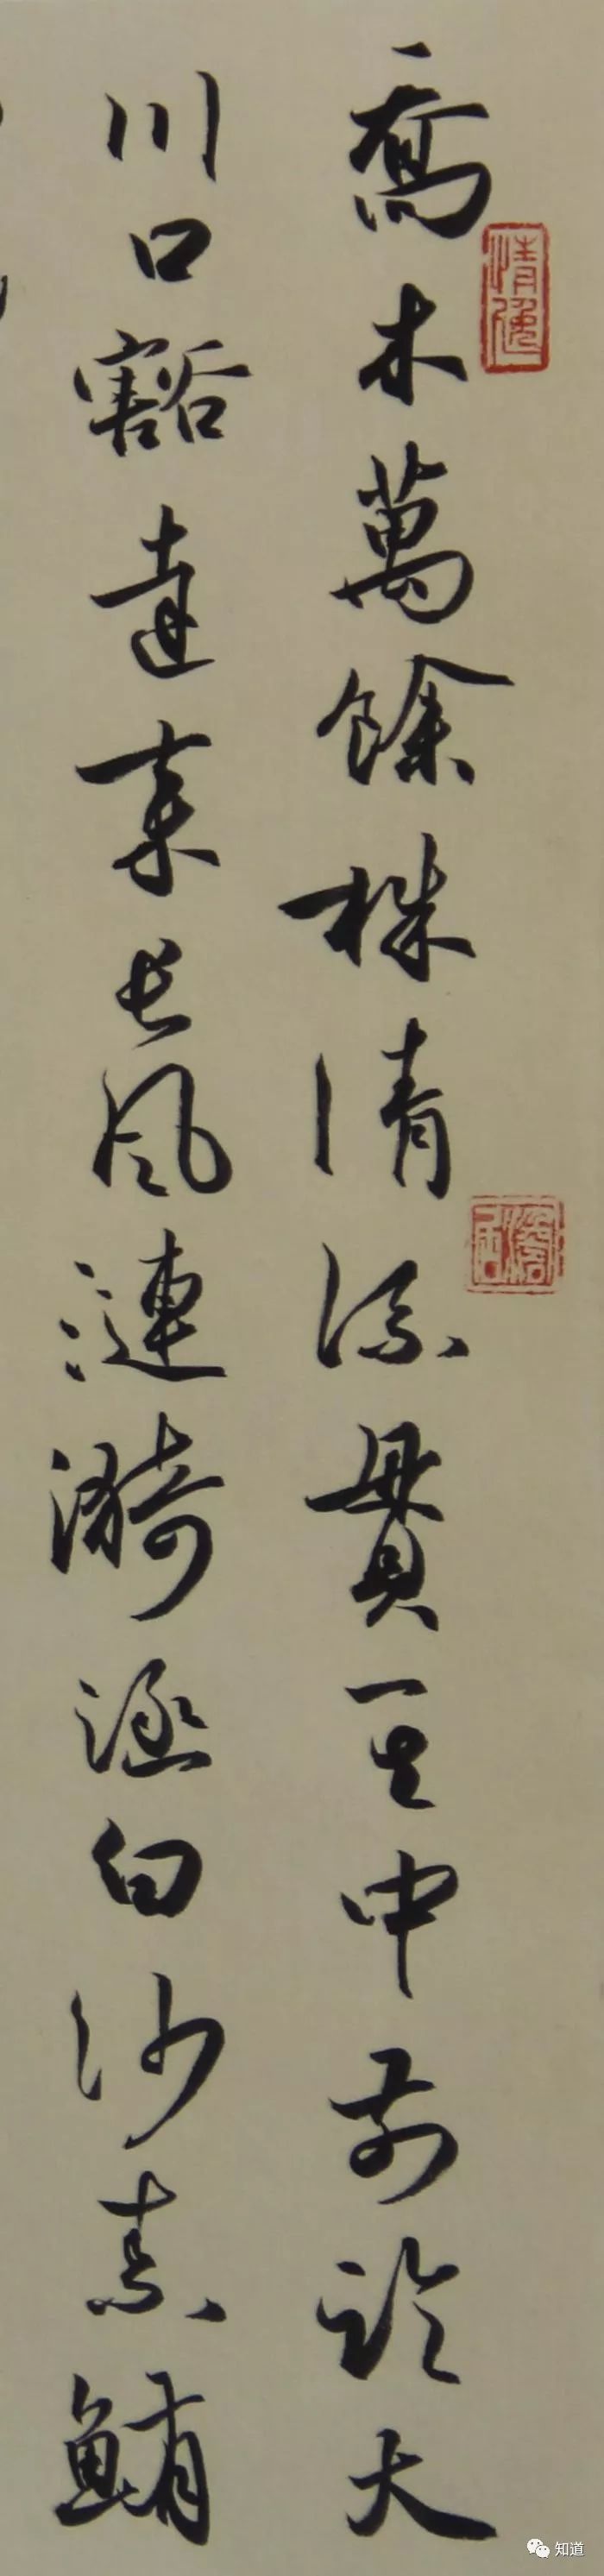 喬木萬餘株清流貫其中前臨大
川口豁達來長風漣漪涵白沙素鮪
知道